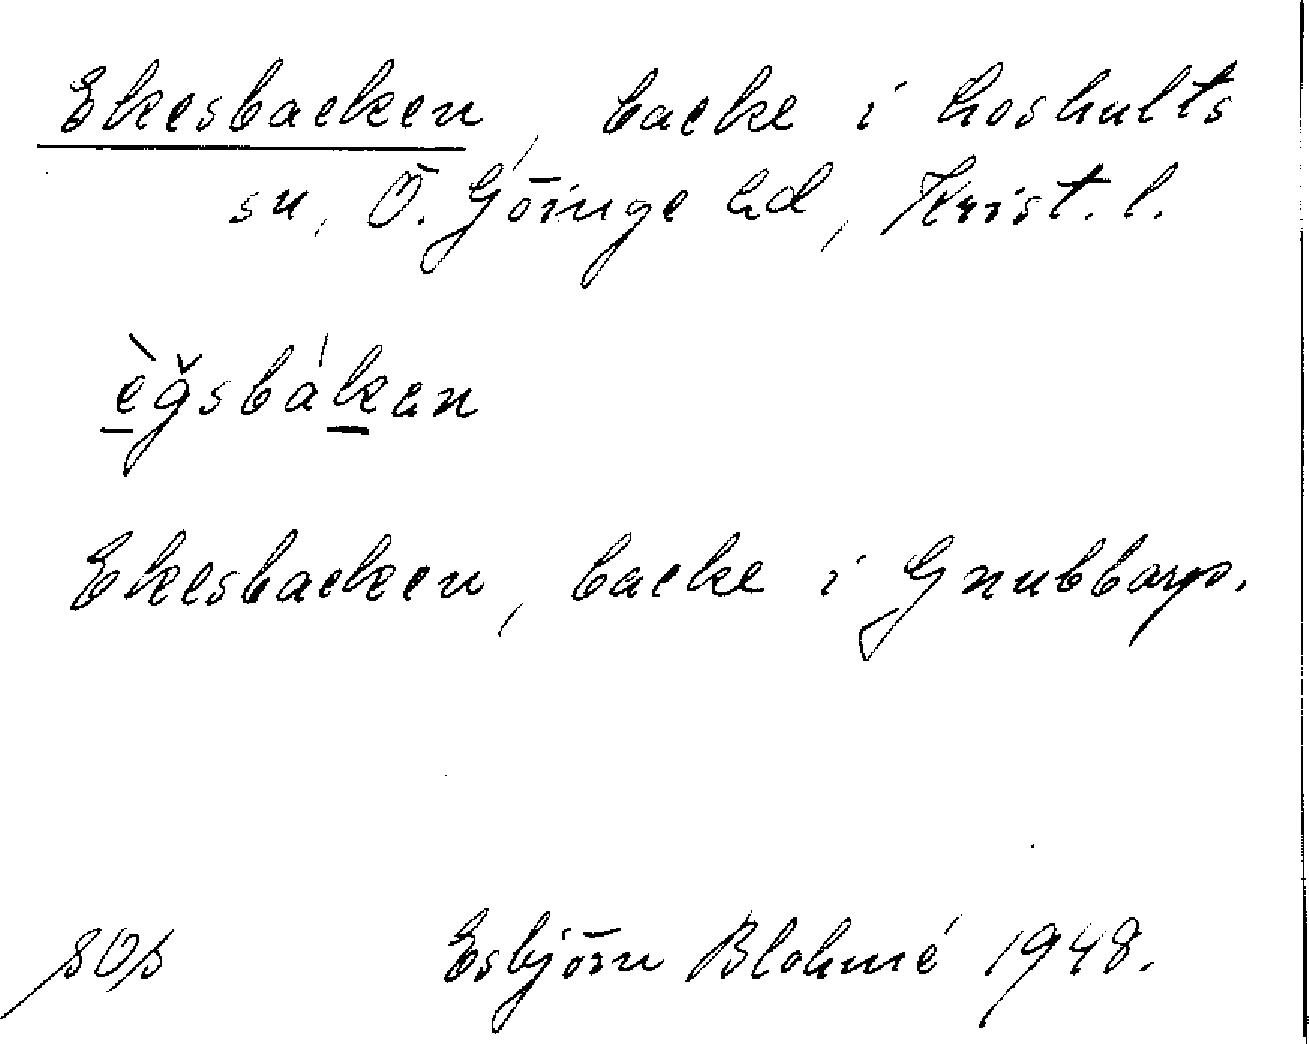 Ekesbacken, backe i Loshults
sn, Ö. Göinge hd, Krist. l.
èǧsbákan
Ekesbacken, backe i Gnubbarp.
Esbjörn Blohmé 1948.